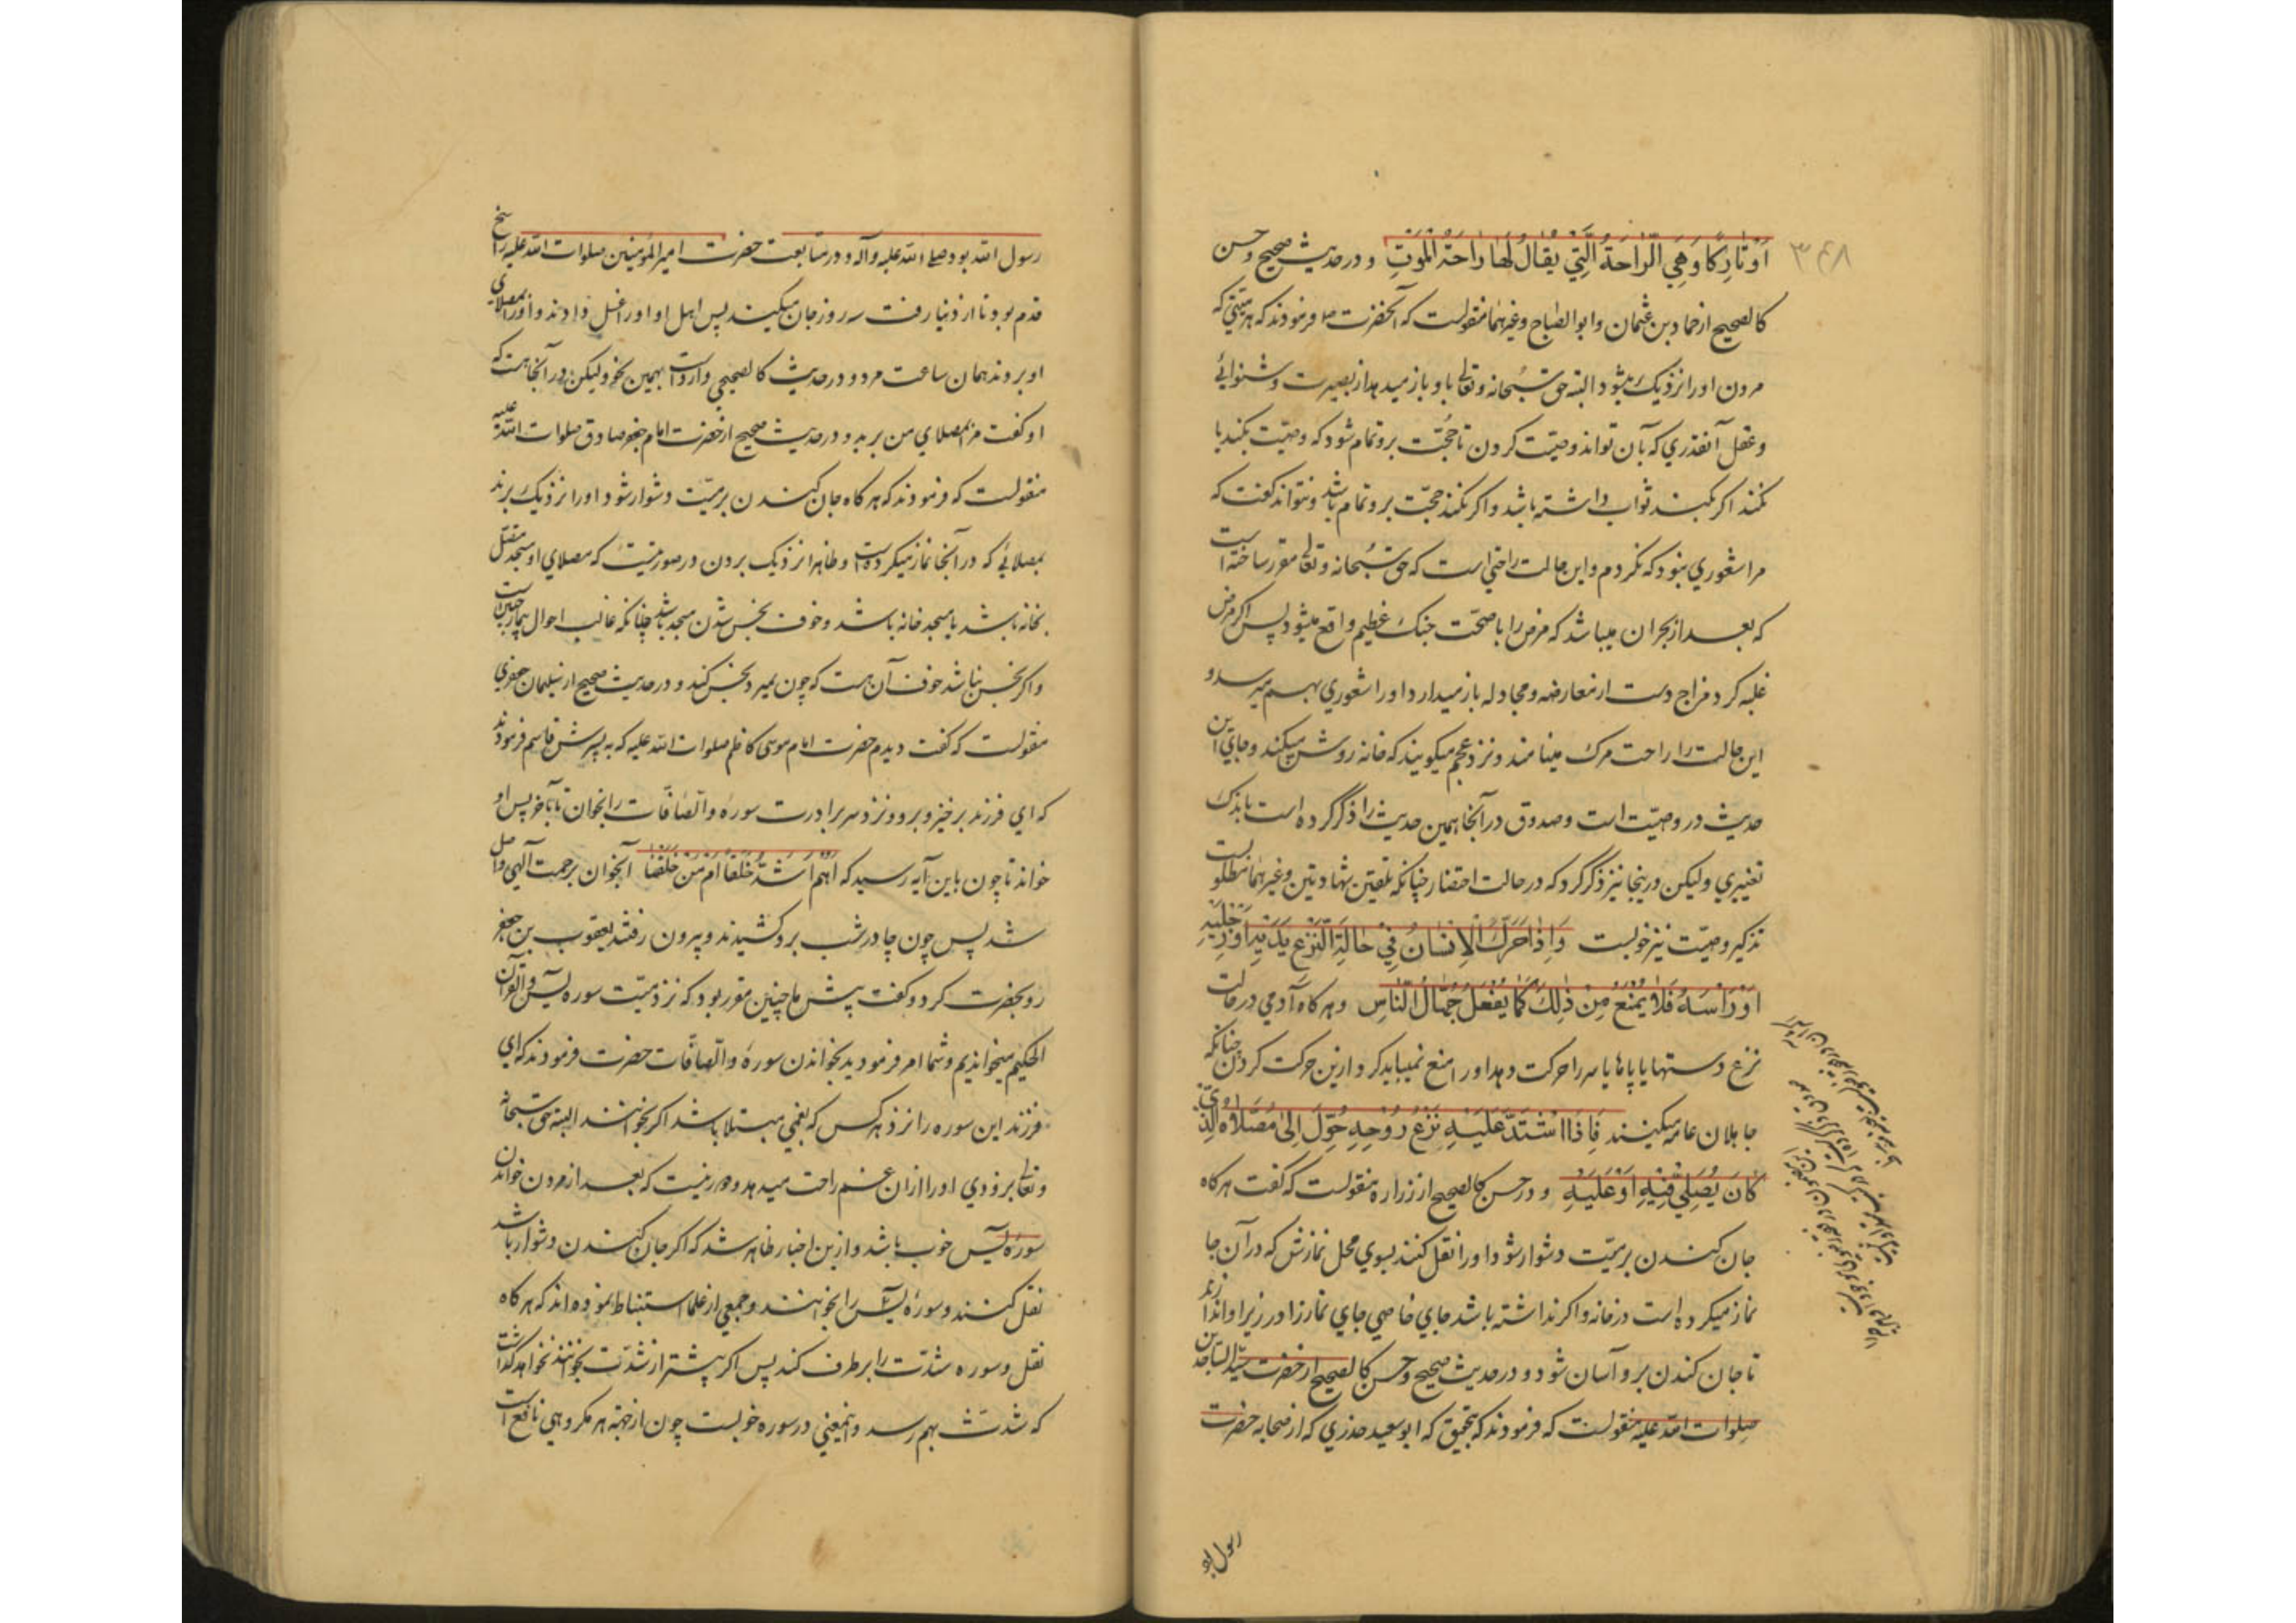 ۳۴۸
اَوْتَارِكًا وَهِيَ الرَّاحَةُ الَّتِي يُقَالُ لَهَا رَاحَةُ الْمَوْتِ و در حدیث صحیح و حسن
كالصحیح از حماد بن عثمان و ابو الصباح و غیرهما منقولست که آنحضرت ص فرمودند که هر میتی که
مردن او را نزدیک میشود البته حق سبحانه و تعالی باو باز میدهد از بصیرت و شنوائی
و عقل آنقدری که بآن تواند وصیت کردن تا حجّت برو تمام شود که وصیّت بکند یا
نکند اکر بکند ثواب داشته باشد و اکر نکند حجّت برو تمام باشد و نتواند کفت که
مرا شعوری نبود که نکردم و این حالت راحتی است که حق سبحانه و تعالی مقرر ساخته است
که بعد از بحران میباشد که مرض را با صحّت جنک عظیم واقع میشود پس اکر مرض
غلبه کرد مزاج دست از معارضه و مجادله باز میدارد و او را شعوری بهم میرسد و
این حالت را راحت مرک مینامند و نزد عجم میکویند که خانه روشن میکند و جای این
حدیث در وصیّت است و صدوق در آنجا همین حدیث را ذکر کرده است باندک
تغییری و لیکن درینجا نیز ذکر کرد که در حالت احتضار چنانکه تلقین شهادتین و غیرهما مطلوبست
تذکیر وصیّت نیز خوبست وَاِذَا حَرَّكَ الْاِنْسَانُ فِي حَالَةِ النَّزْعِ يَدَيْهِ اَوْ رِجْلَيْهِ
اَوْ رَاْسَهُ فَلَا يُمْنَعُ مِنْ ذٰلِكَ كَمَا يَفْعَلُ جُهَّالُ النَّاسِ و هر کاه آدمی در حالت
نزع دستها یا پاها یا سر را حرکت دهد او را منع نمیباید کرد ازین حرکت کردن چنانکه
جاهلان عامه میکنند فَاِذَا اشْتَدَّ عَلَيْهِ نَزْعُ رُوْحِهِ حُوِّلَ اِلٰى مُصَلَّاهُ الَّذِي
كَانَ يُصَلِّي فِيْهِ اَوْ عَلَيْهِ و در حسن کالصحیح از زراره منقولست که کفت هرکاه
جان کندن بر میّت دشوار شود او را نقل کنند بسوی محل نمازش که در آن جا
نماز میکرده است در خانه و اکر نداشته باشد جای خاصی جای نماز را در زیر او اندازند
تا جان کندن برو آسان شود و در حدیث صحیح و حسن کالصحیح از حضرت سیّد الساجدین
صلوات الله علیه منقولست که فرمودند که بتحقیق که ابو سعید خدری که از صحابه حضرت
رسول الله بود صلی الله علیه و آله و در متابعت حضرت امیر المؤمنین صلوات الله علیه راسخ
قدم بود تا از دنیا رفت سه روز جان میکند پس اهل او او را غسل دادند و او را بمصلای
او بردند همان ساعت مرد و در حدیث کالصحیحی وارد است بهمین نحو و لیکن در آنجا هست که
او کفت مرا بمصلای من برید و در حدیث صحیح از حضرت امام جعفر صادق صلوات الله علیه
منقولست که فرمودند که هر کاه جان کندن بر میّت دشوار شود او را نزدیک برند
بمصلائی که در آنجا نماز میکرده است و ظاهرا نزدیک بردن در صورتیست که مصلای او مسجد متصل
بخانه باشد یا مسجد خانه باشد و خوف نجس شدن مسجد باشد چنانکه غالب احوال بیمار چنین است
و اکر نجس نباشد خوف آن هست که چون بمیرد نجس کند و در حدیث صحیح از سلیمان جعفری
منقولست که کفت دیدم حضرت امام موسی کاظم صلوات الله علیه که به پسرش قاسم فرمودند
که ای فرزند برخیز و برو و نزد سر برادرت سوره والصّافّات را بخوان تا بآخر پس او
خواند تا چون باین آیه رسید که اَهُمْ اَشَدُّ خَلْقًا اَمْ مَنْ خَلَقْنَا آنجوان برحمت آلهی واصل
شد پس چون چادر شب برو کشیدند و بیرون رفتند یعقوب بن جعفر
رو بحضرت کرد و کفت پیش ما چنین مقرر بود که نزد میّت سوره یس والقرآن
الحکیم میخواندیم و شما امر فرمودید بخواندن سوره والصّافّات حضرت فرمودند که ای
فرزند این سوره را نزد هر کس که بغمی مبتلا باشد اکر بخوانند البته حق سبحانه
و تعالی بزودی او را از آن غم راحت میدهد و دور نیست که بعد از مردن خواندن
سوره یس خوب باشد و ازین اخبار ظاهر شد که اکر جان کندن دشوار باشد
نقل کنند و سوره یس را بخوانند و جمعی از علما استنباط نموده اند که هر کاه
نقل و سوره شدّت را بر طرف کند پس اکر پیشتر از شدّت بخوانند نخواهد کذاشت
که شدّت بهم رسد و اینمعنی در سوره خوبست چون از جهة هر مکروهی نافع است
رسول الله